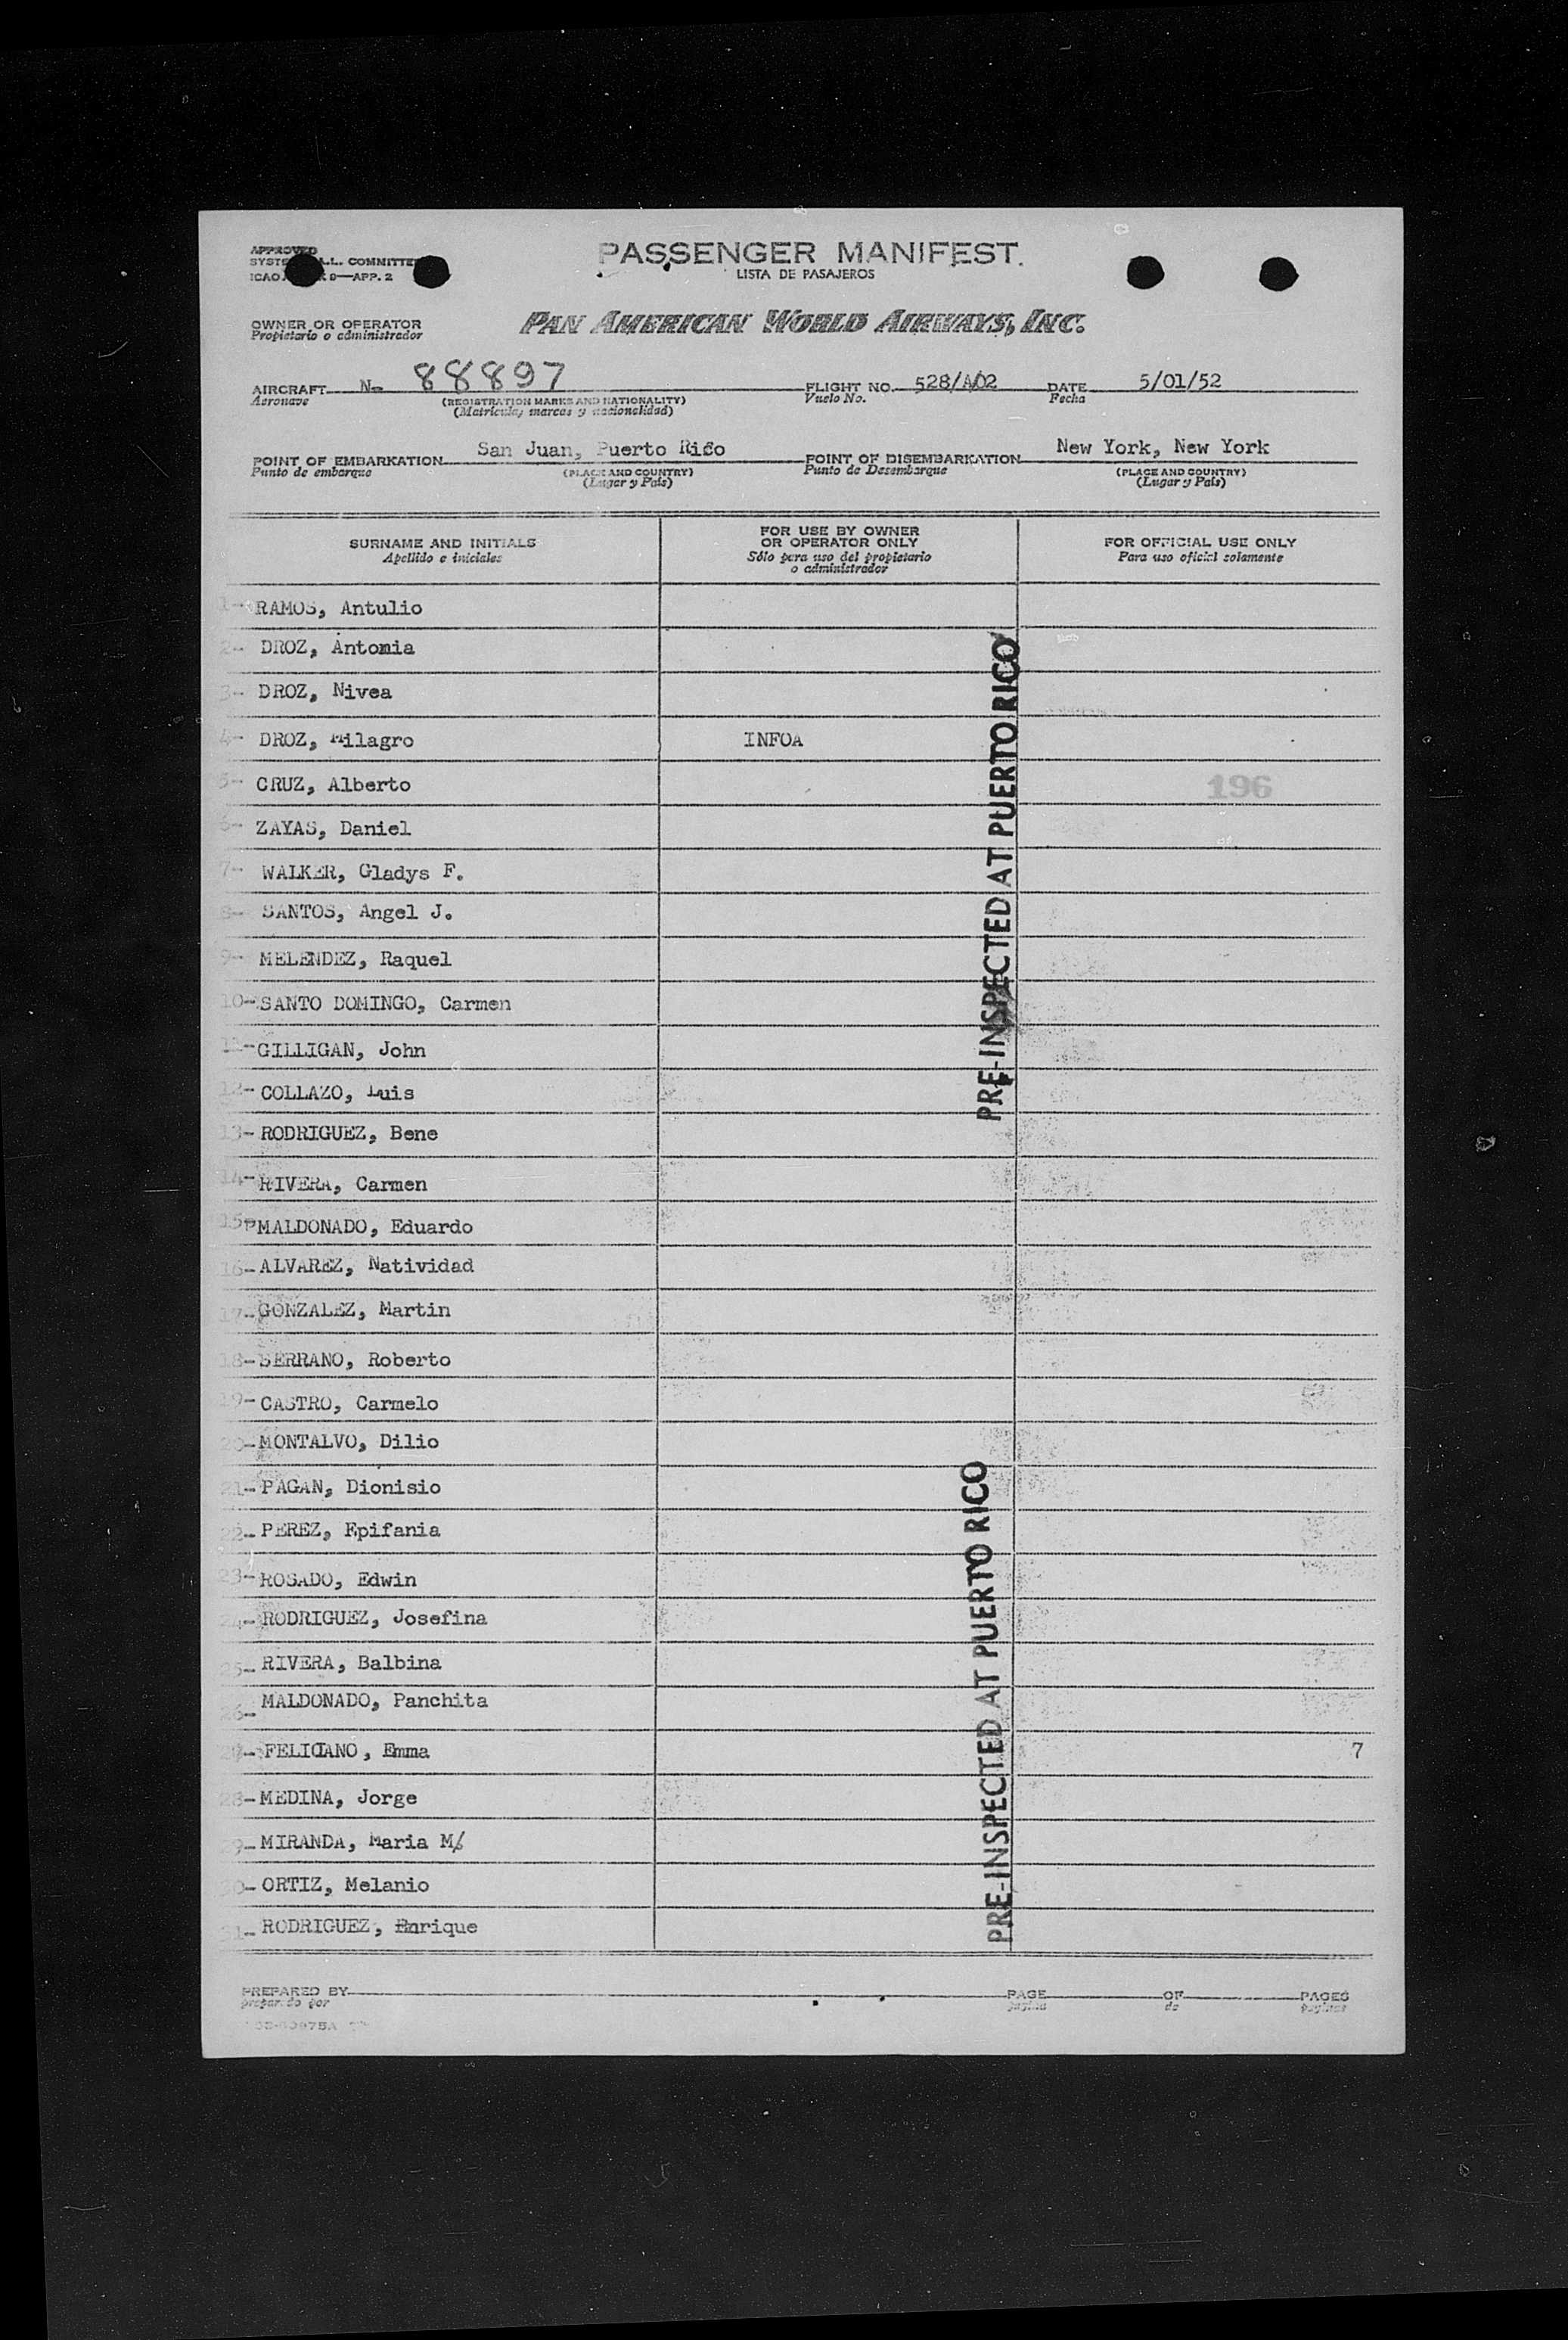 PASSENGER MANIFEST.
LISTA DE PASAJEROS
APPROVED
L.L. COMMITTEE
ICAO 9—APP. 2
OWNER OR OPERATOR
Propietario o administrador
PAN AMERICAN WORLD AIRWAYS, INC.
AIRCRAFT N- 88897 FLIGHT NO. 528/A02 DATE 5/01/52
Aeronave (REGISTRATION MARKS AND NATIONALITY) Vuelo No. Fecha
(Matricula, marcas y nacionalidad)
POINT OF EMBARKATION San Juan, Puerto Rico POINT OF DISEMBARKATION New York, New York
Punto de embarque (PLACE AND COUNTRY) Punto de Desembarque (PLACE AND COUNTRY)
(Lugar y País) (Lugar y País)
SURNAME AND INITIALS
Apellido e iniciales
FOR USE BY OWNER
OR OPERATOR ONLY
Sólo para uso del propietario
o administrador
FOR OFFICIAL USE ONLY
Para uso oficial solamente
1- RAMOS, Antulio
2- DROZ, Antonia
3- DROZ, Nivea
4- DROZ, Milagro INFOA
5- CRUZ, Alberto 196
6- ZAYAS, Daniel
7- WALKER, Gladys F.
8- SANTOS, Angel J.
9- MELENDEZ, Raquel
10- SANTO DOMINGO, Carmen
11- GILLIGAN, John
12- COLLAZO, Luis
13- RODRIGUEZ, Bene
14- RIVERA, Carmen
15- MALDONADO, Eduardo
16- ALVAREZ, Natividad
17- GONZALEZ, Martin
18- SERRANO, Roberto
19- CASTRO, Carmelo
20- MONTALVO, Dilio
21- PAGAN, Dionisio
22- PEREZ, Epifania
23- ROSADO, Edwin
24- RODRIGUEZ, Josefina
25- RIVERA, Balbina
26- MALDONADO, Panchita
27- FELICIANO, Emma 7
28- MEDINA, Jorge
29- MIRANDA, Maria M.
30- ORTIZ, Melanio
31- RODRIGUEZ, Enrique
PRE-INSPECTED AT PUERTO RICO
PRE-INSPECTED AT PUERTO RICO
PREPARED BY PAGE OF PAGES
preparado por pagina de paginas